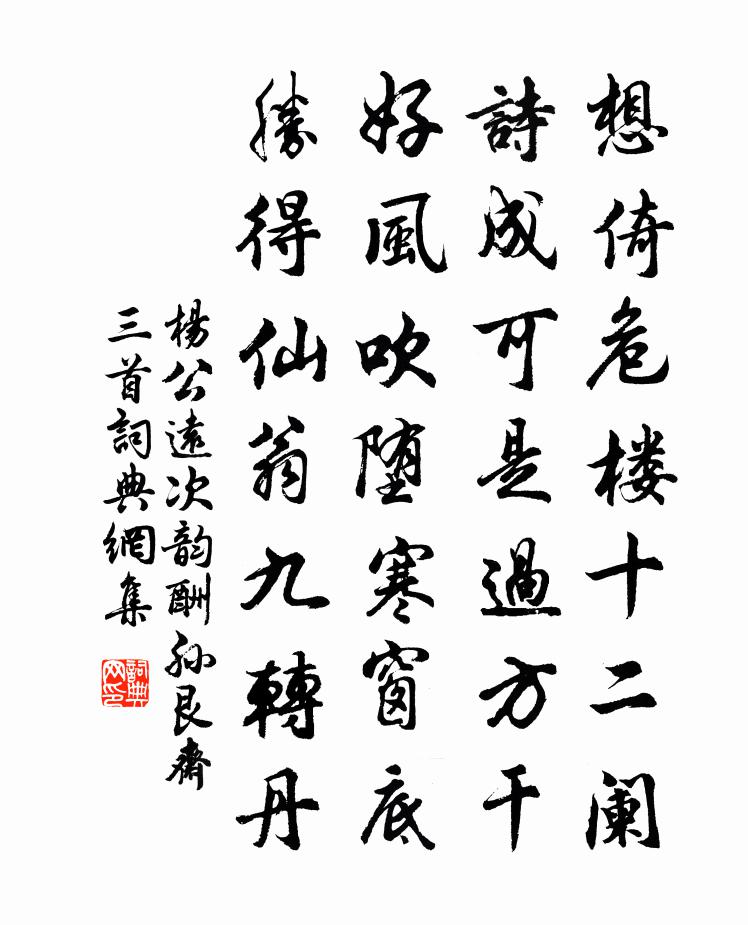 想倚危楼十二阑
詩成可是過方干
好風吹堕寒窗底
勝得仙翁九轉丹
楊公遠次韵酬孙艮齋
三首詞典網集
詞典网印